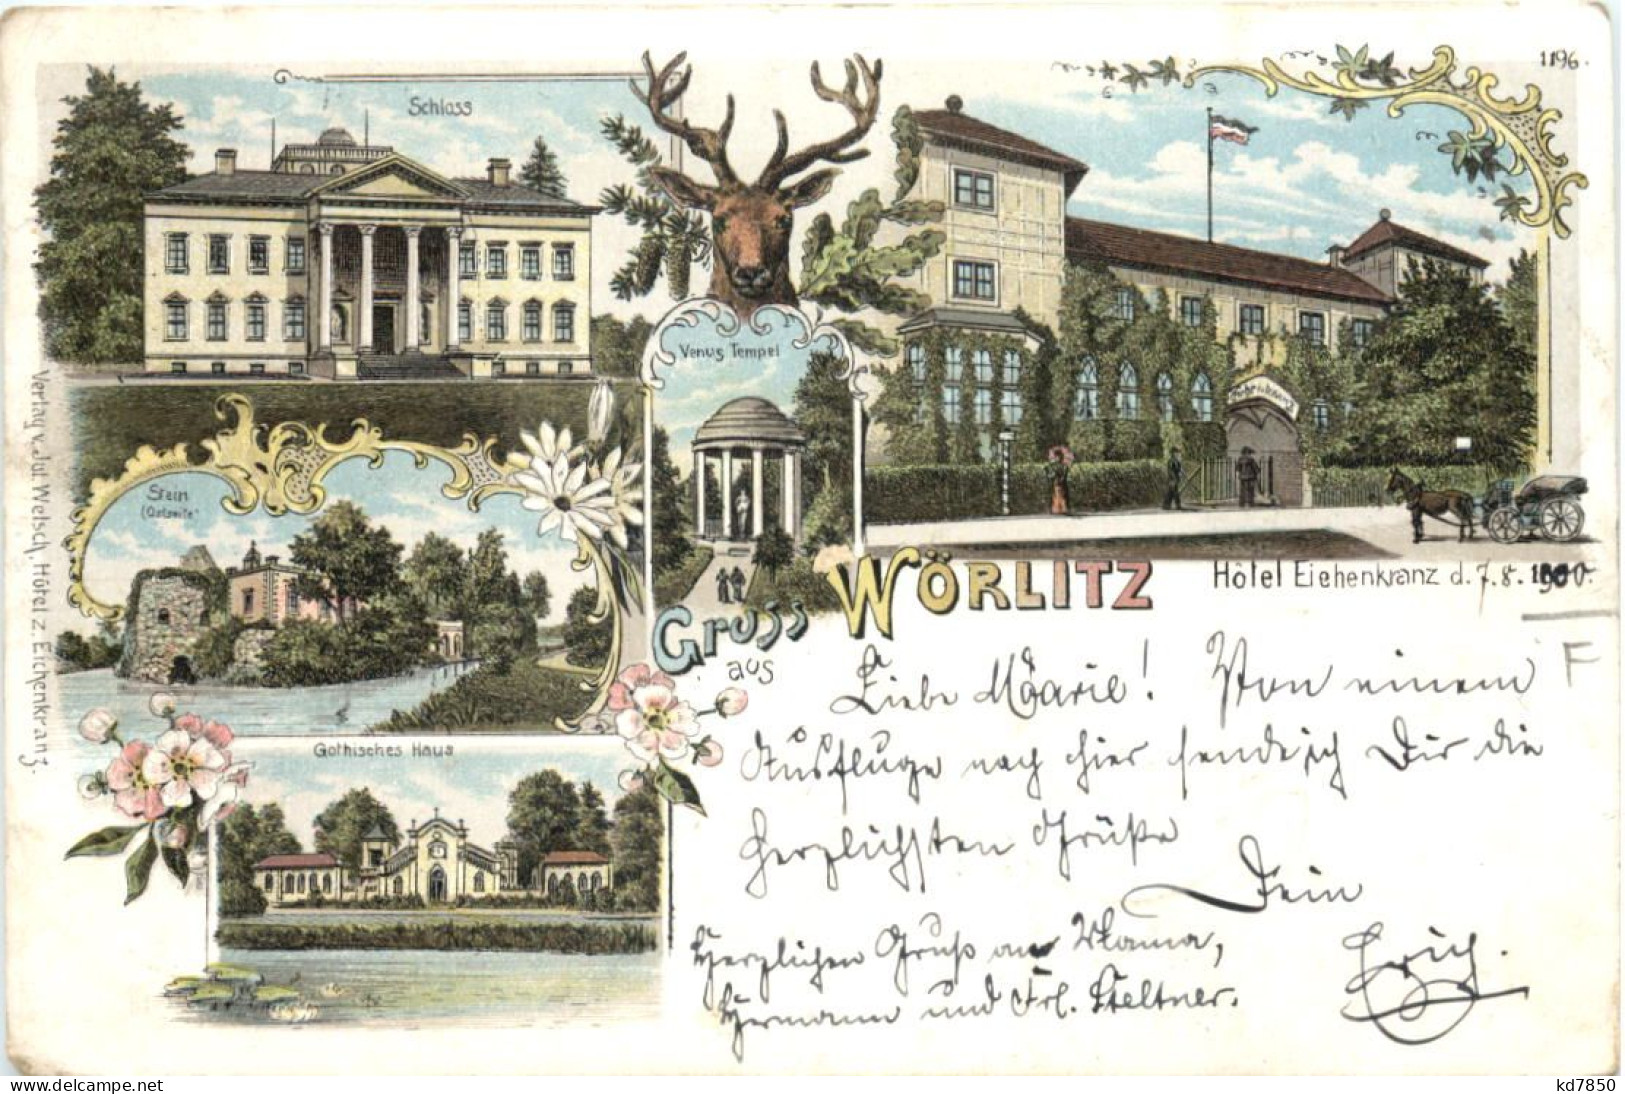 1196.
Schloss
Venus Tempel
Stein
(Ostseite)
Gothisches Haus
Verlag v. Jul. Welsch, Hôtel z. Eichenkranz.
Gruss
aus
WÖRLITZ
Hôtel Eichenkranz d. 7. 8. 1900.
F
Liebe Maarie! Von einem
Ausfluge nach hier sende ich Dir die
herzlichsten Grüße
Dein
Erich.
Herzlichen Gruß an Mama,
Hermann und Frl. Steltner.
delcampe.net
kd7850